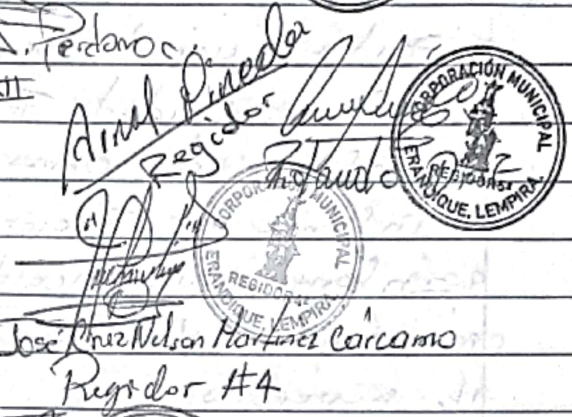 Perdomo
III
Arnal Pineda
Regidor
CORPORACIÓN MUNICIPAL
REGIDOR
ERANDIQUE, LEMPIRA.
CORPORACIÓN MUNICIPAL
REGIDOR
ERANDIQUE, LEMPIRA.
José Cruz Nelson Martínez Cárcamo
Regidor #4